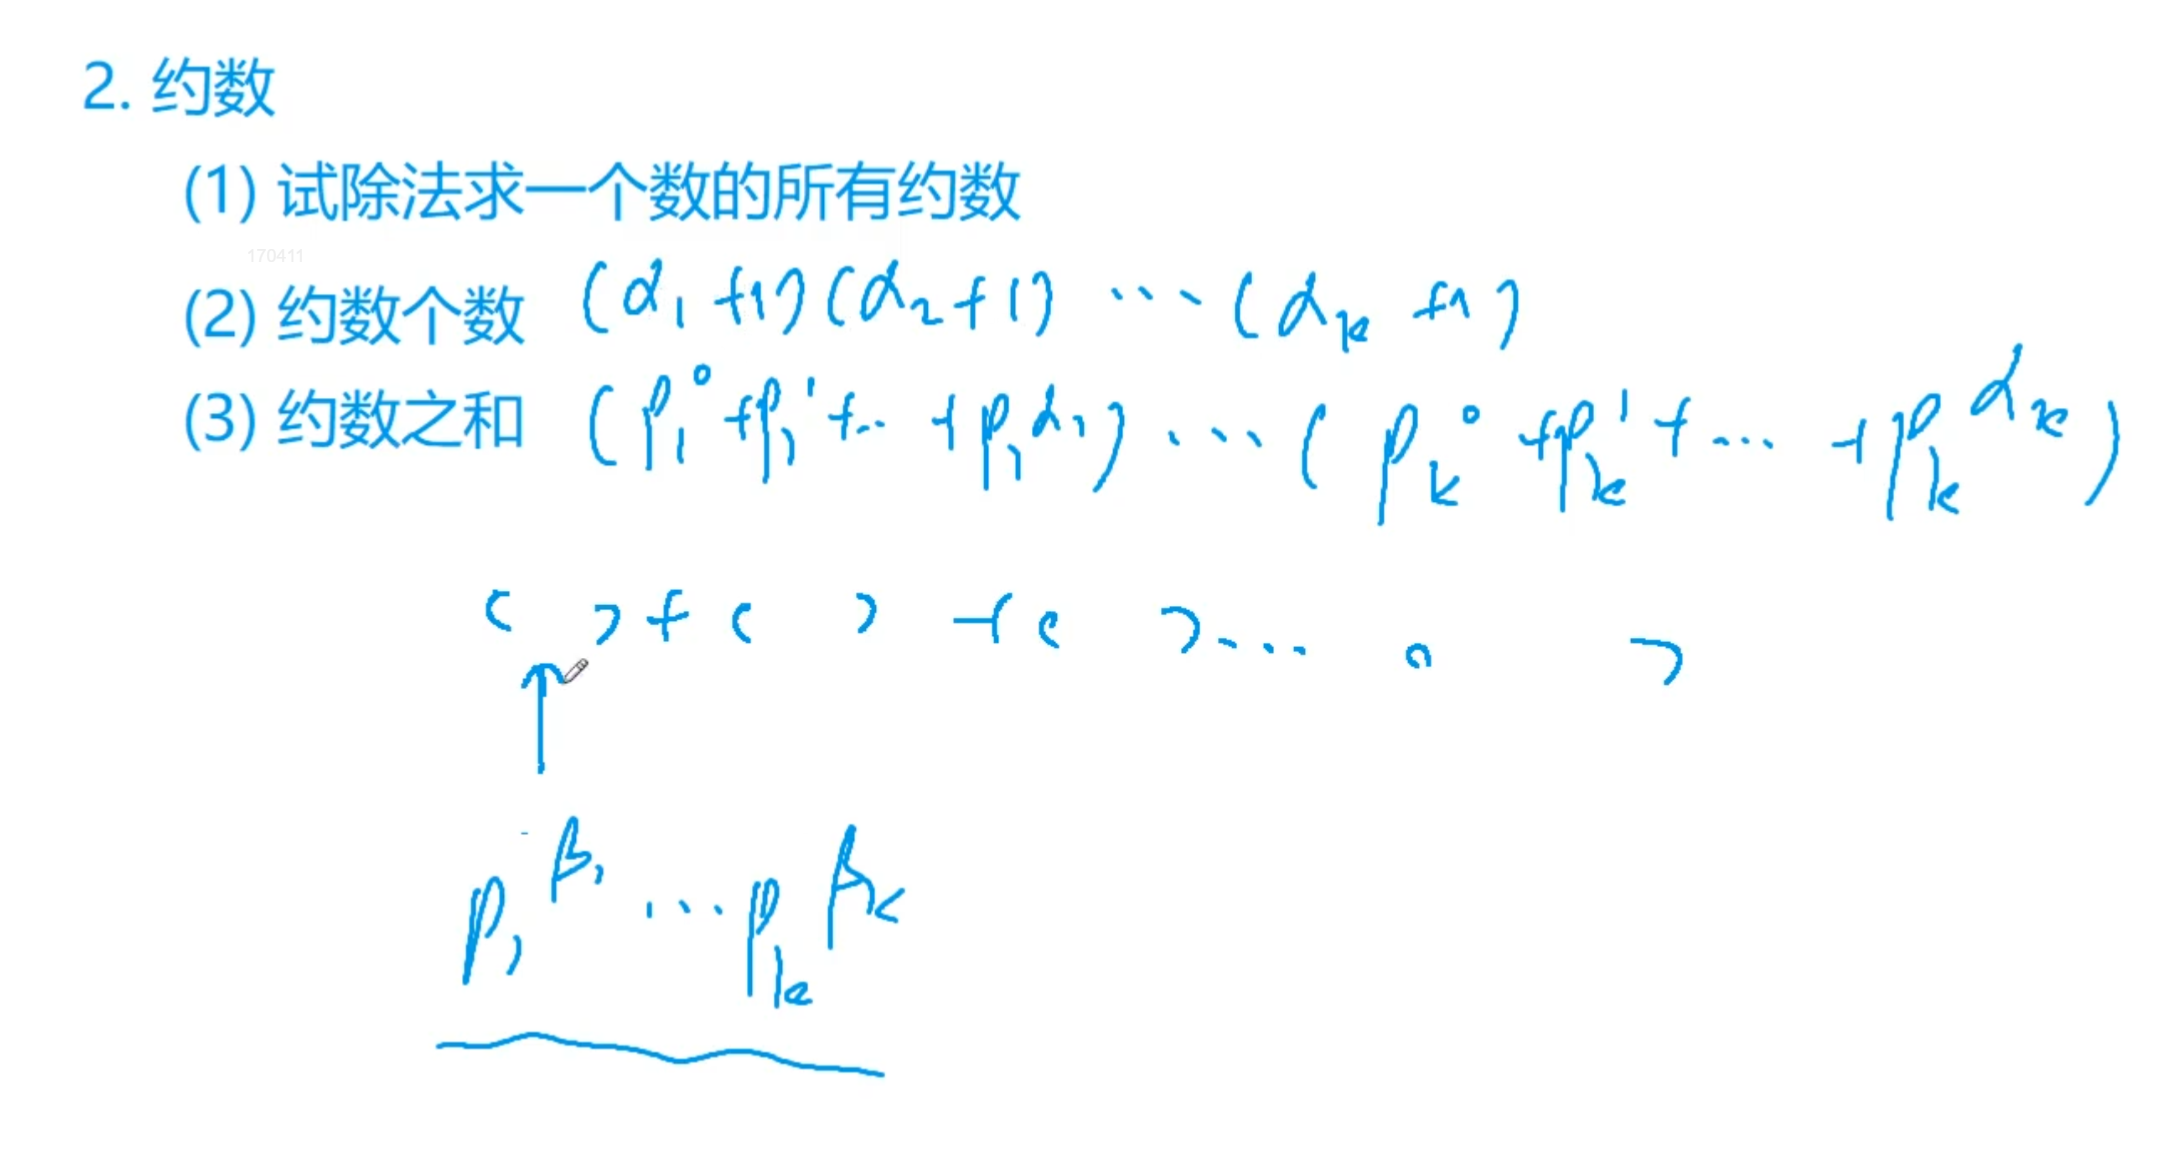 2. 约数
(1) 试除法求一个数的所有约数
170411
(2) 约数个数 (α₁+1)(α₂+1)…(αₖ+1)
(3) 约数之和 (p₁⁰+p₁¹+…+p₁^α₁)…(pₖ⁰+pₖ¹+…+pₖ^αₖ)
( )+( )+( )… ( )
p₁^β₁…pₖ^βₖ